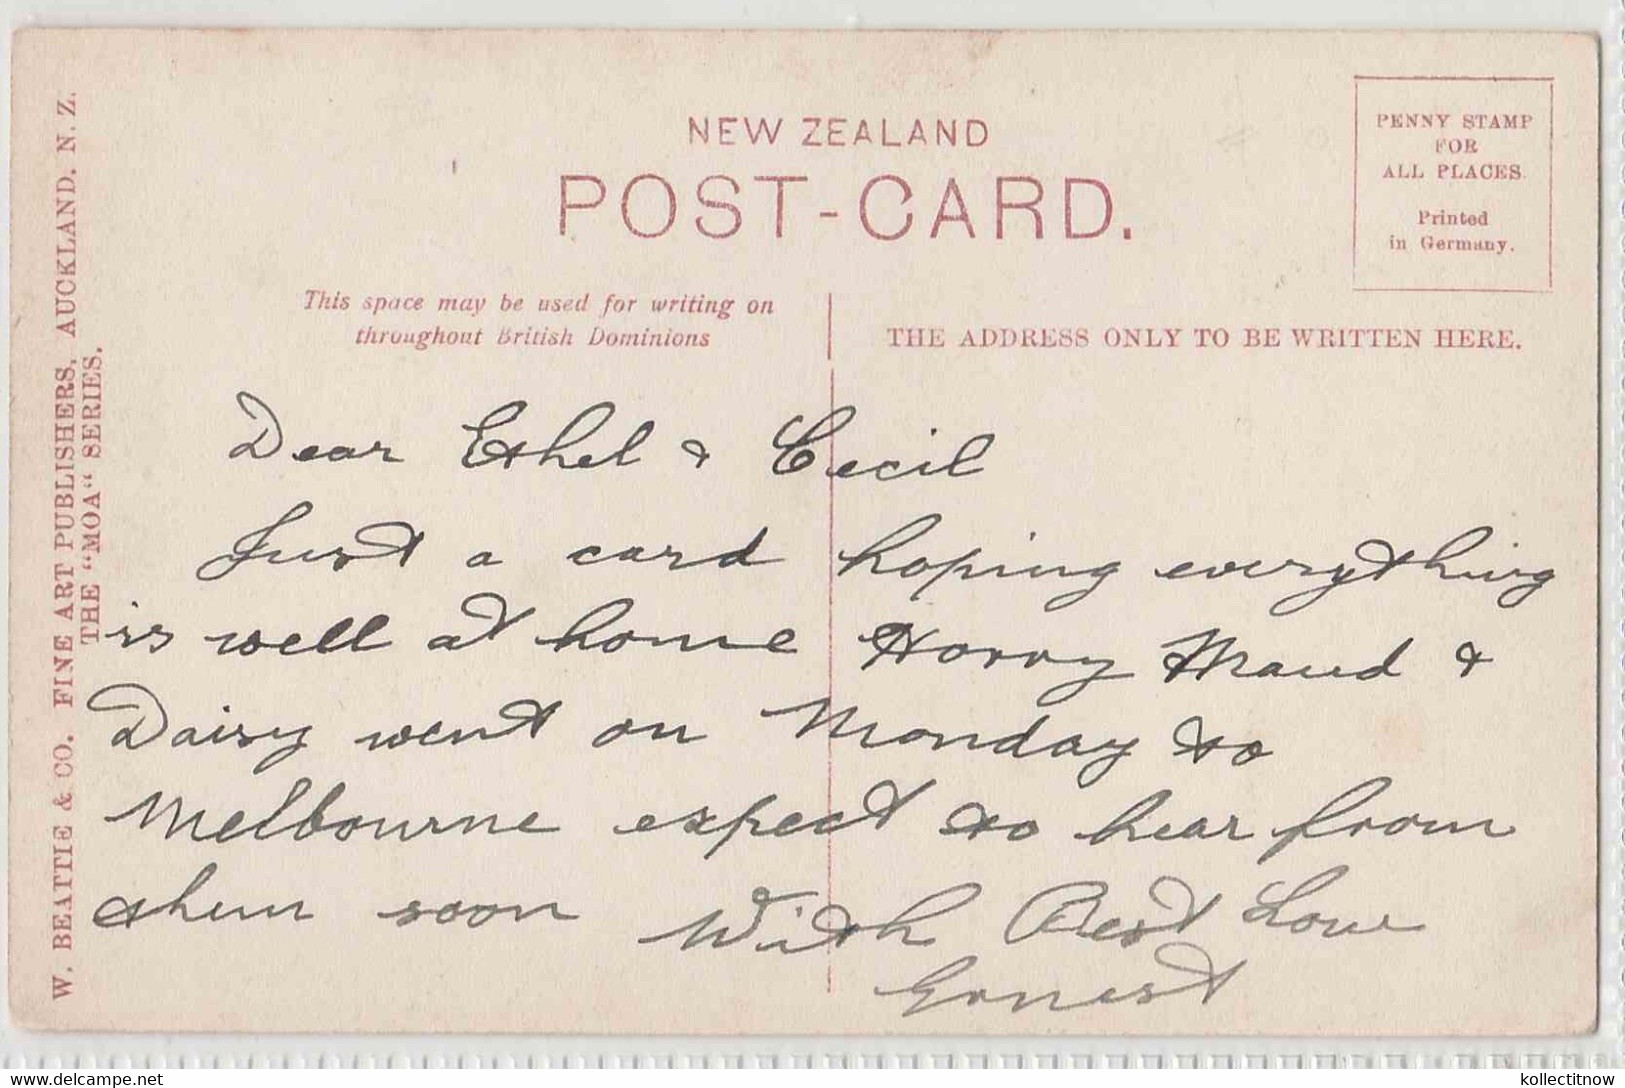 NEW ZEALAND
POST-CARD.
PENNY STAMP
FOR
ALL PLACES.
Printed
in Germany.
This space may be used for writing on
throughout British Dominions
THE ADDRESS ONLY TO BE WRITTEN HERE.
W. BEATTIE & CO. FINE ART PUBLISHERS, AUCKLAND. N. Z.
THE "MOA" SERIES.
Dear Ethel & Cecil
Just a card hoping everything
is well at home Harry Maud &
Daisy went on Monday to
Melbourne expect to hear from
them soon With Best Love
Ernest
kollectitnow